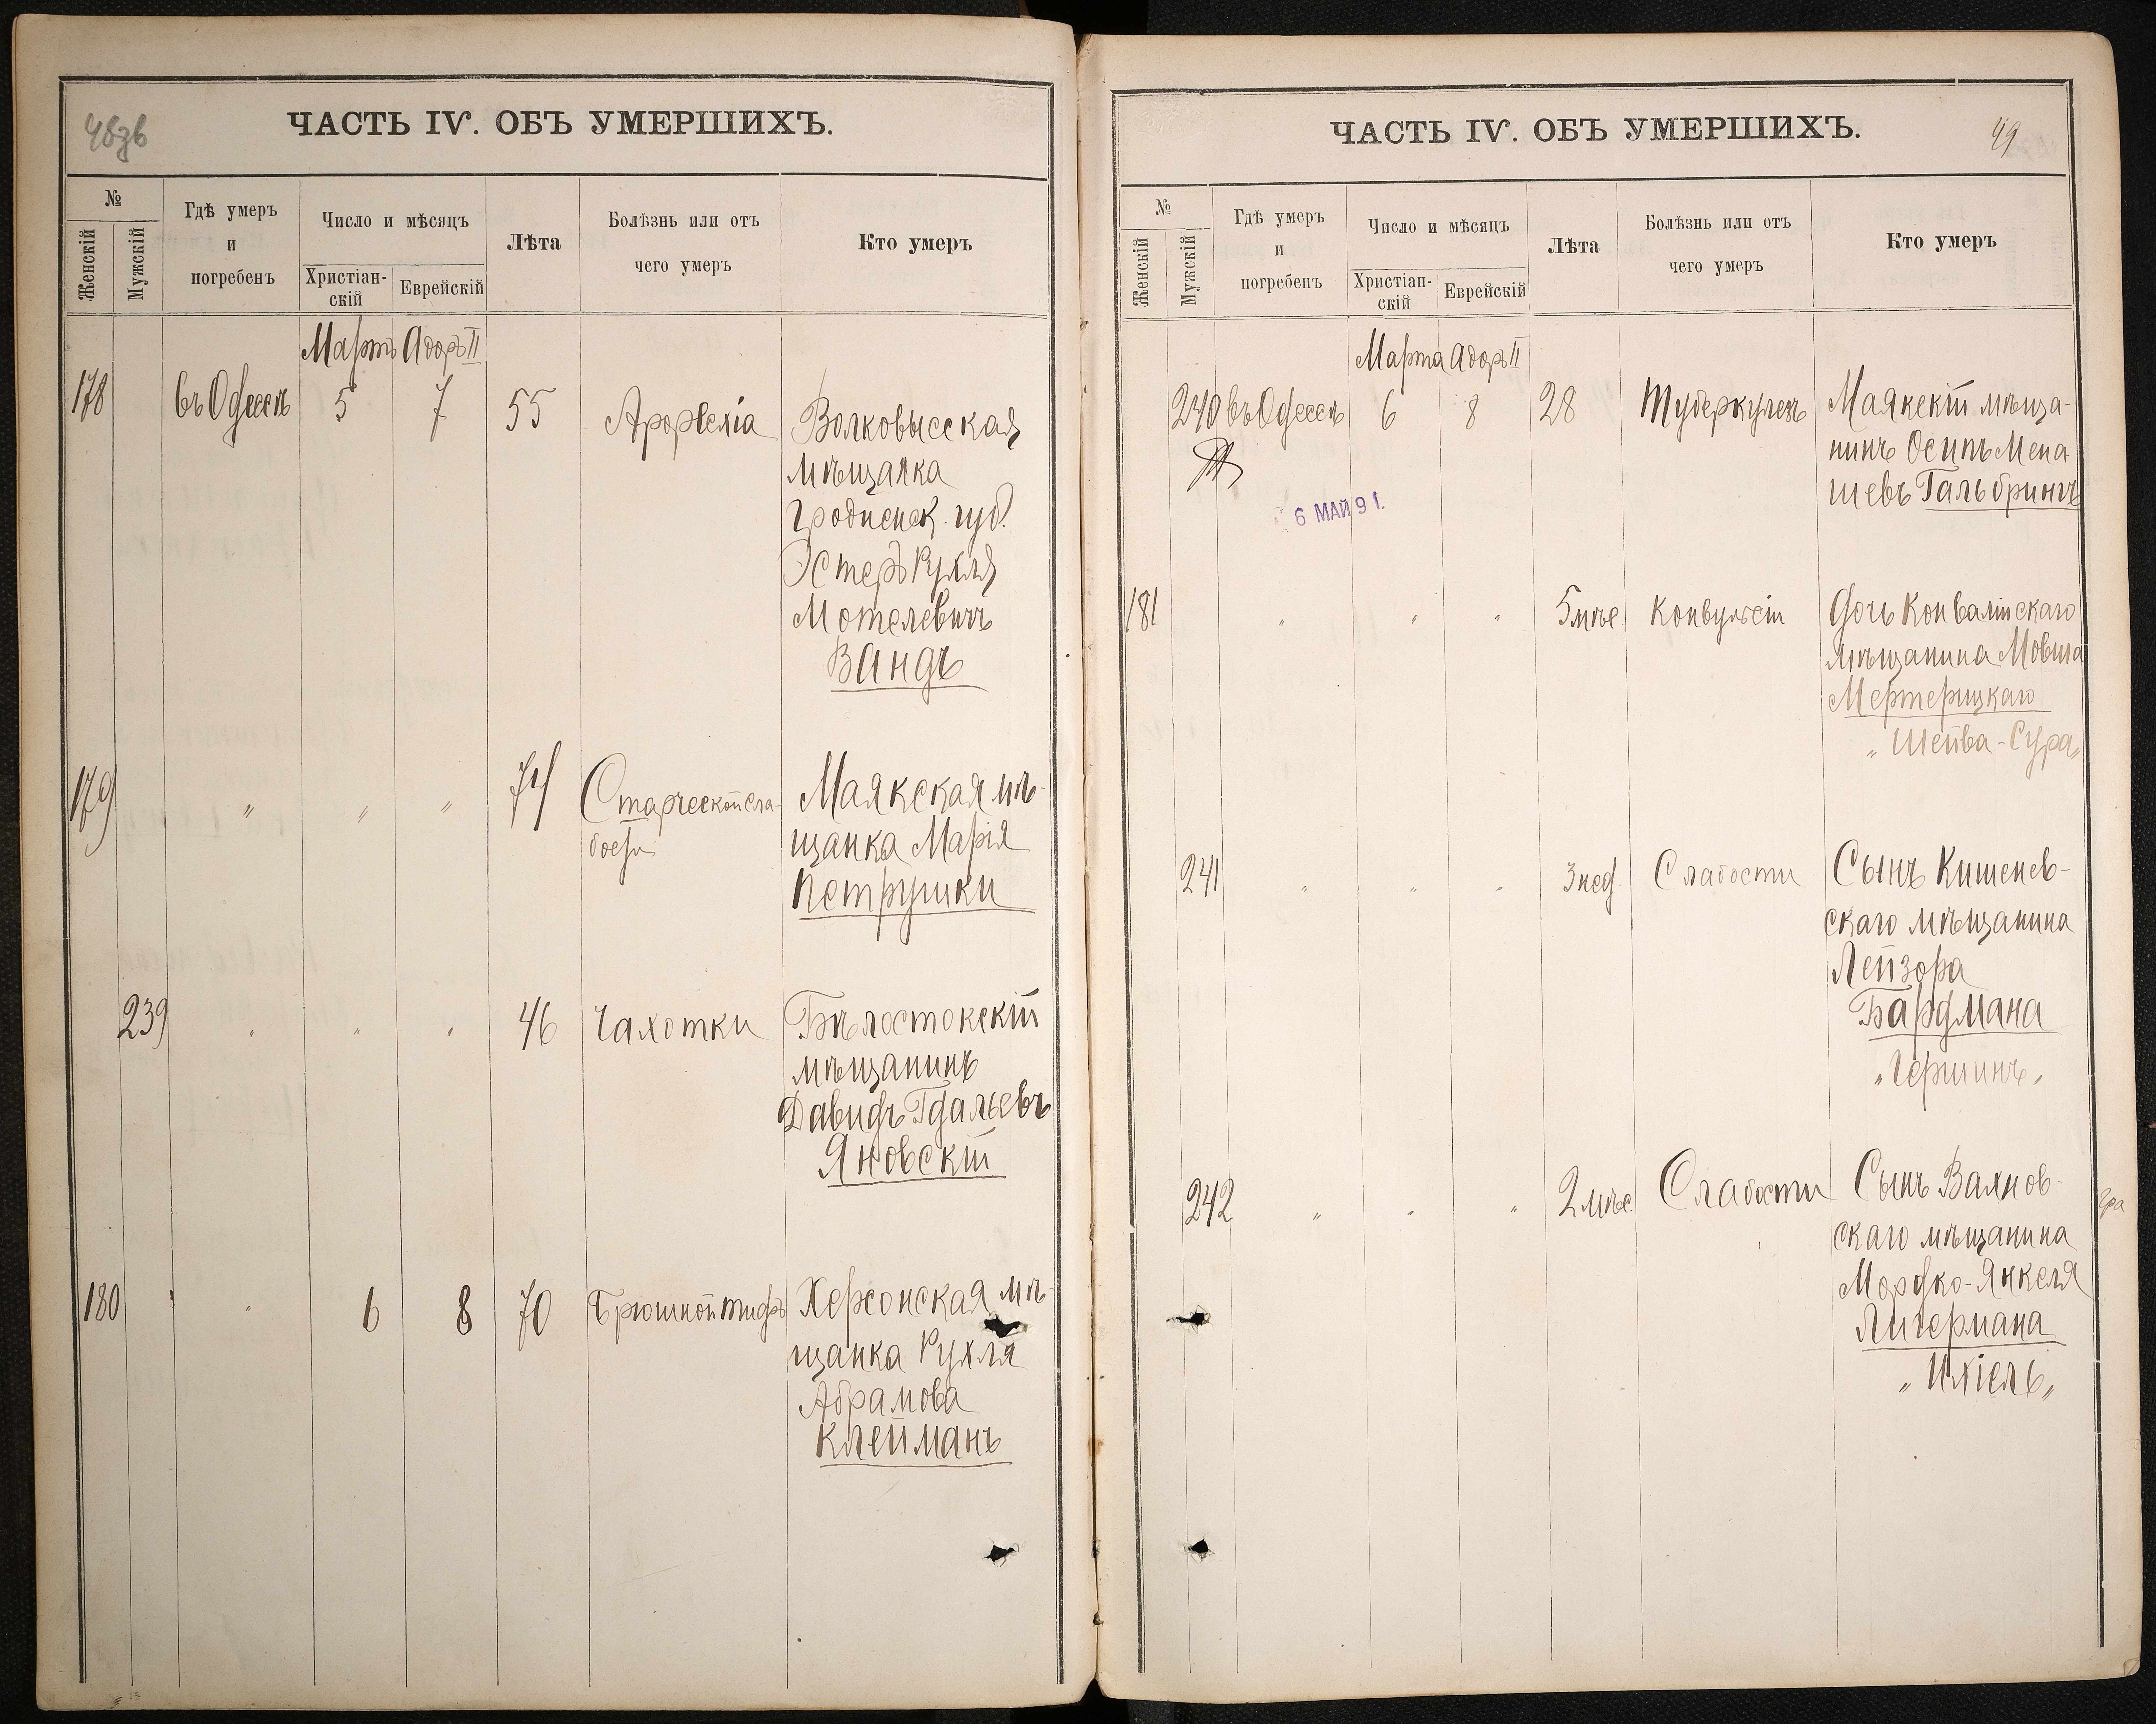 48зв
ЧАСТЬ IV. ОБЪ УМЕРШИХЪ.
№
Женскій
Мужскій
Гдѣ умеръ
и
погребенъ
Число и мѣсяцъ
Христіан-
скій
Еврейскій
Лѣта
Болѣзнь или отъ
чего умеръ
Кто умеръ
Мартъ Адоръ II
178 въ Одессѣ 5 7 55 Волковысская
мѣщанка
Гродненск. губ.
Эстеръ Рухля
Мотелевичъ
Вандъ
179 " " " 74 Старческой сла-
бости
Маякская мѣ-
щанка Марія
Петрушки
239 " " " 46 Чахотки Бѣлостокскій
мѣщанинъ
Давидъ Гдальевъ
Яновскій
180 " 6 8 70 Брюшной тифъ Херсонская мѣ-
щанка Рухля
Абрамова
Клейманъ
ЧАСТЬ IV. ОБЪ УМЕРШИХЪ.
49
№
Женскій
Мужскій
Гдѣ умеръ
и
погребенъ
Число и мѣсяцъ
Христіан-
скій
Еврейскій
Лѣта
Болѣзнь или отъ
чего умеръ
Кто умеръ
Марта Адоръ II
240 въ Одессѣ 6 8 28 Туберкулезъ Маякскій мѣща-
нинъ Осипъ Мена
шевъ Гальбрингъ
6 МАЙ 91.
181 " " " 5 мѣс. Конвульсіи Дочь Конвалійскаго
мѣщанина Мовша
Мертерицкаго
„ Шейва-Сура „
241 " " " 3 нед. Слабости Сынъ Кишенев-
скаго мѣщанина
Лейзора
Бардмана
„ Гершинъ „
242 " " " 2 мѣс. Слабости Сынъ Вахнов-
скаго мѣщанина
Мордко-Янкеля
Лигермана
„ Ихіель „